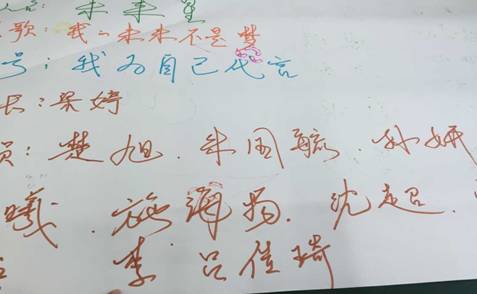 未来星
歌:我的未来不是梦
号:我为自己代言
长:梁婷
员:楚旭.朱国毓.孙妍
曦.施海扬.沈超.
李 吕佳琦